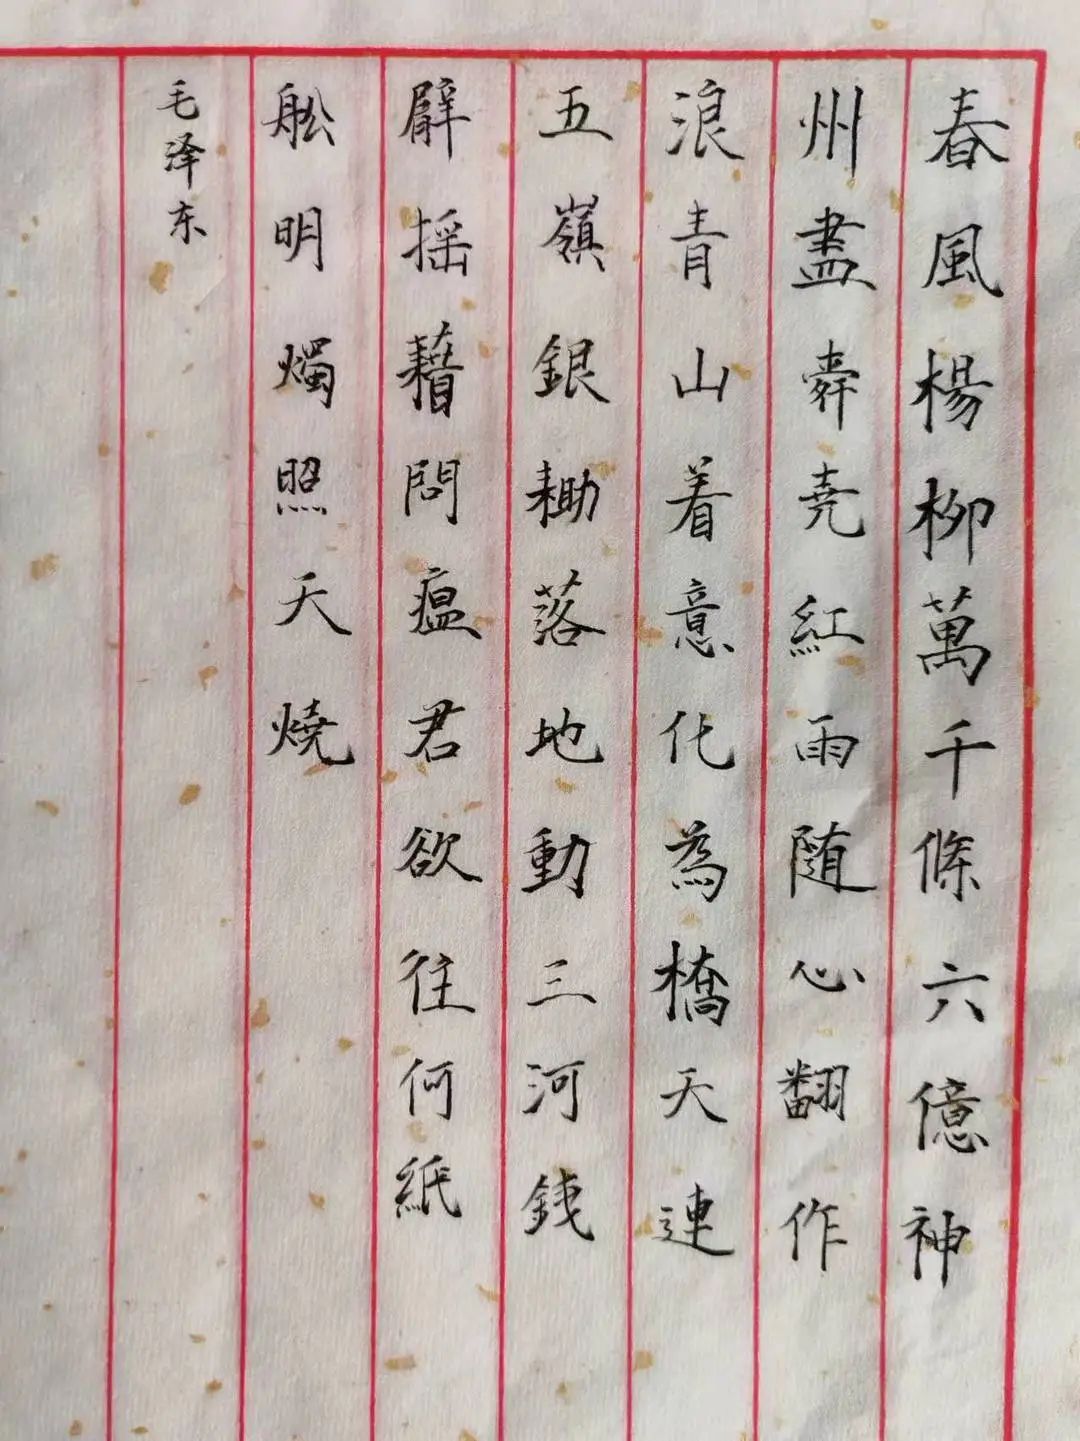 春風楊柳萬千條六億神
州盡舜尭紅雨随心翻作
浪青山着意化為橋天連
五嶺銀耡落地動三河銕
臂摇藉問瘟君欲往何紙
舩明燭照天燒
毛泽东